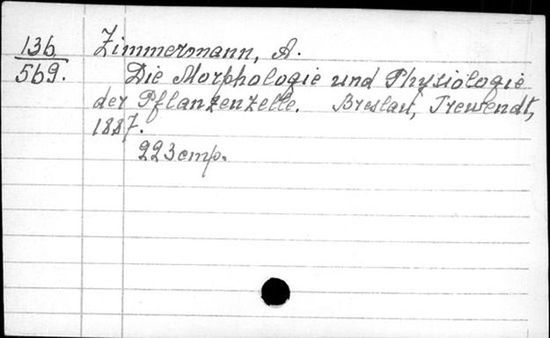 136 Zimmermann, A.
569. Die Morphologie und Physiologie
der Pflanzenzelle. Breslau, Trewendt,
1887.
223 стр.